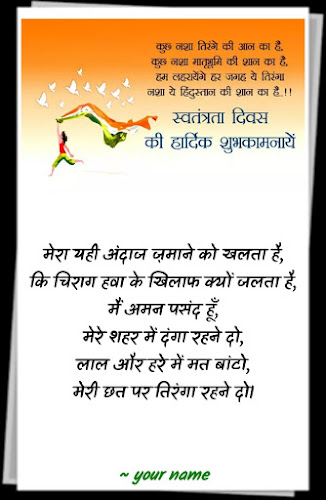 कुछ नशा तिरंगे की आन का है,
कुछ नशा मातृभूमि की शान का है,
हम लहरायेंगे हर जगह ये तिरंगा
नशा ये हिंदुस्तान की शान का है..!!
स्वतंत्रता दिवस
की हार्दिक शुभकामनायें
मेरा यही अंदाज ज़माने को खलता है,
कि चिराग हवा के खिलाफ क्यों जलता है,
मैं अमन पसंद हूँ,
मेरे शहर में दंगा रहने दो,
लाल और हरे में मत बांटो,
मेरी छत पर तिरंगा रहने दो।
~ your name